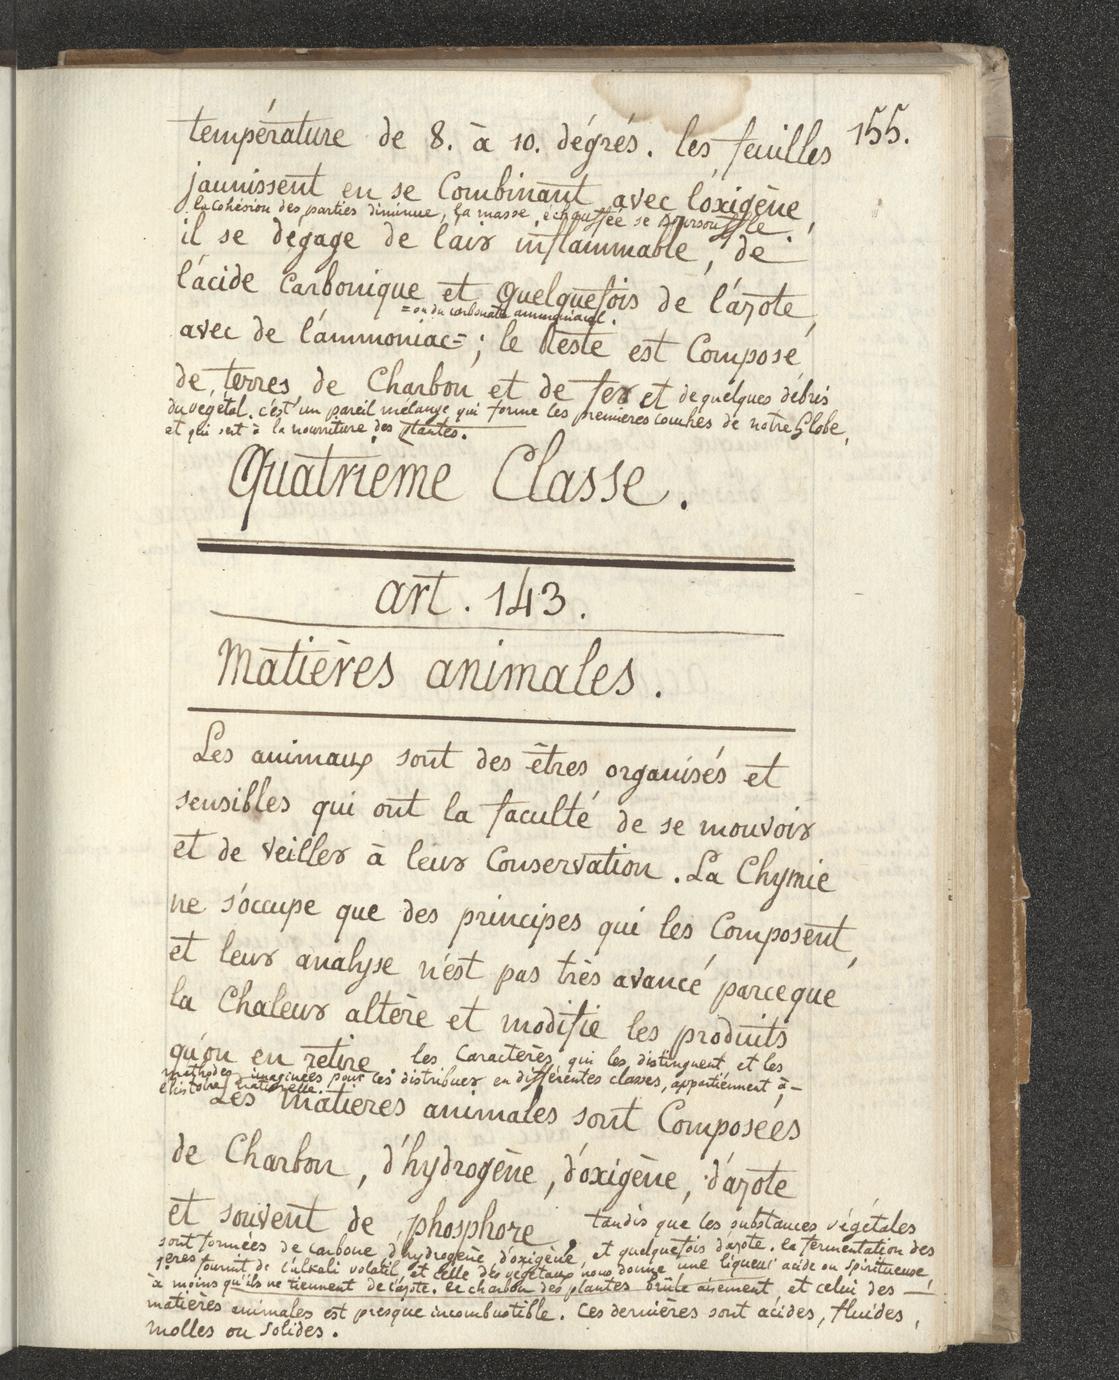 155.
température de 8. à 10. dégrés. les feuilles
jaunissent en se Combinant avec l'oxigène,
la cohésion des parties diminue, la masse échauffée se boursouffle.
il se dégage de l'air inflammable, de
l'acide Carbonique et quelquefois de l'azote,
=ou du carbonate ammoniacal.
avec de l'ammoniac=; le Reste est Composé
de terres de Charbon et de fer et de quelques débris
du végétal. c'est un pareil mélange qui forme les premières couches de notre Globe,
et qui sert à la nourriture des plantes.
Quatrieme Classe.
art. 143.
Matières animales.
Les animaux sont des êtres organisés et
sensibles qui ont la faculté de se mouvoir
et de veiller à leur Conservation. La Chymie
ne s'occupe que des principes qui les Composent,
et leur analyse n'est pas très avancé parceque
la Chaleur altère et modifie les produits
qu'on en retire les Caractères qui les distinguent, et les
méthodes imaginées pour les distribuer en différentes classes, appartiennent à
l'histoire naturelle.
Les Matieres animales sont Composées
de Charbon, d'hydrogène, d'oxigène, d'azote
et souvent de phosphore, tandis que les substances végétales
sont formées de carbone, d'hydrogène, d'oxigène, et quelquefois d'azote. la fermentation des
1ères fournit de l'alkali volatil, et celle des végétaux nous donne une liqueur acide ou spiritueuse,
à moins qu'ils ne tiennent de l'azote. le charbon des plantes brûle aisement, et celui des
matières animales est presque incombustible. Ces dernières sont acides, fluides,
molles ou solides.